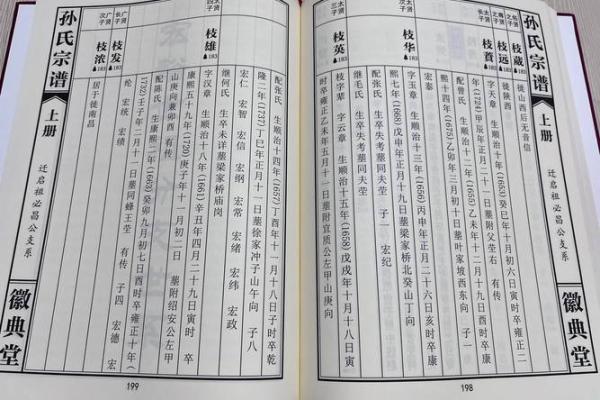 孙氏宗谱
上册
迁启祖必昌公支系
徽典堂
枝远▲183
枝蒉▲183
徙山西后无音信
徙陕西
字天章 生顺治十年(1653)癸巳年十月十一日寅时卒雍正二
年(1724)甲辰年正月二十六日墓附父茔右 有传
配曾氏 生顺治十二年(1655)乙未年十二月二十九日酉时卒康
熙十四年(1675)乙卯年三月初十日墓叶家坡西东向 子一
宏泰
太贤次子
枝华▲183
字玉章 生顺治十三年(1656)丙申年正月二十六日亥时卒康
熙七年(1668)戊申年正月十九日墓梁家桥北癸山丁向
配孔氏 生卒失考墓同夫茔 子一 宏纪
继毛氏 生卒失考墓同夫茔
太贤三子
枝英▲183
枝字辈 字云章 生顺治十五年(1658)戊戌年十月十八日寅
时卒雍正乙未年五月十一日墓附宜质公左甲山庚向
198
配张氏 生顺治十四年(1657)丁酉年十一月十八日子时卒乾
隆二年(1737)丁巳年正月十一日墓徐家冲子山午向 子八
宏仁 宏智 宏信 宏纲 宏常 宏绪 宏纬 宏政
继何氏 生卒未详墓梁家桥庙岗
太贤四子
枝雄▲183
字汉章 生顺治十八年(1661)辛丑年四月二十九日寅时卒
康熙五十九年(1720)庚子年十一月初二日 墓附绍安公左甲
山庚向兼卯酉 有传
配陈氏 生康熙二年(1663)癸卯年九月初七日酉时卒雍正十年(
1732)壬子年二月十一日墓同蜂王茔 有传 子四 宏德 宏
纶 宏统 宏绩
广贤长子
枝发▲183
广贤次子
枝浓▲183
居于徙南昌
孙氏宗谱
上册
迁启祖必昌公支系
徽典堂
199